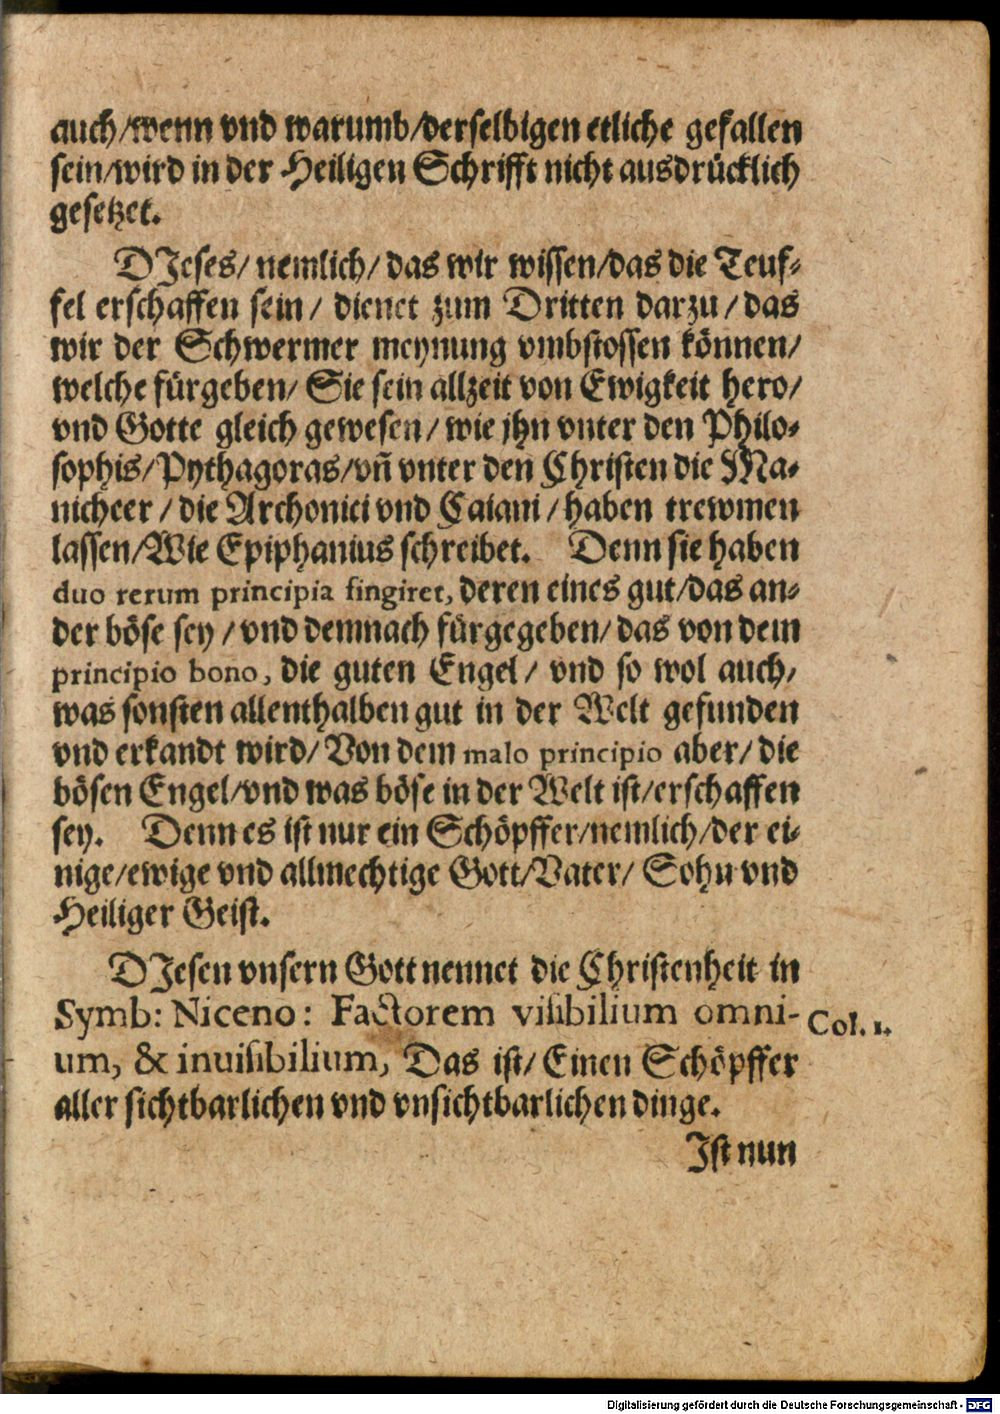 auch/wenn vnd warumb/derselbigen etliche gefallen
sein/wird in der Heiligen Schrifft nicht ausdrücklich
gesetzet.
DJeses/ nemlich/ das wir wissen/das die Teuf-
fel erschaffen sein/ dienet zum Dritten darzu/ das
wir der Schwermer meynung vmbstossen können/
welche fürgeben/ Sie sein allzeit von Ewigkeit hero/
vnd Gotte gleich gewesen/ wie jhn vnter den Philo-
sophis/Pythagoras/vñ vnter den Christen die Ma-
nicheer/ die Archonici vnd Caiani/ haben trewmen
lassen/Wie Epiphanius schreibet. Denn sie haben
duo rerum principia fingiret, deren eines gut/das an-
der böse sey/ vnd demnach fürgegeben/ das von dem
principio bono, die guten Engel/ vnd so wol auch/
was sonsten allenthalben gut in der Welt gefunden
vnd erkandt wird/ Von dem malo principio aber/ die
bösen Engel/vnd was böse in der Welt ist/erschaffen
sey. Denn es ist nur ein Schöpffer/nemlich/der ei-
nige/ewige vnd allmechtige Gott/Vater/ Sohn vnd
Heiliger Geist.
DJesen vnsern Gott nennet die Christenheit in
Symb: Niceno: Factorem visibilium omni-
um, & inuisibilium, Das ist/ Einen Schöpffer
aller sichtbarlichen vnd vnsichtbarlichen dinge.
Col. 1.
Jst nun
Digitalisierung gefördert durch die Deutsche Forschungsgemeinschaft - DFG